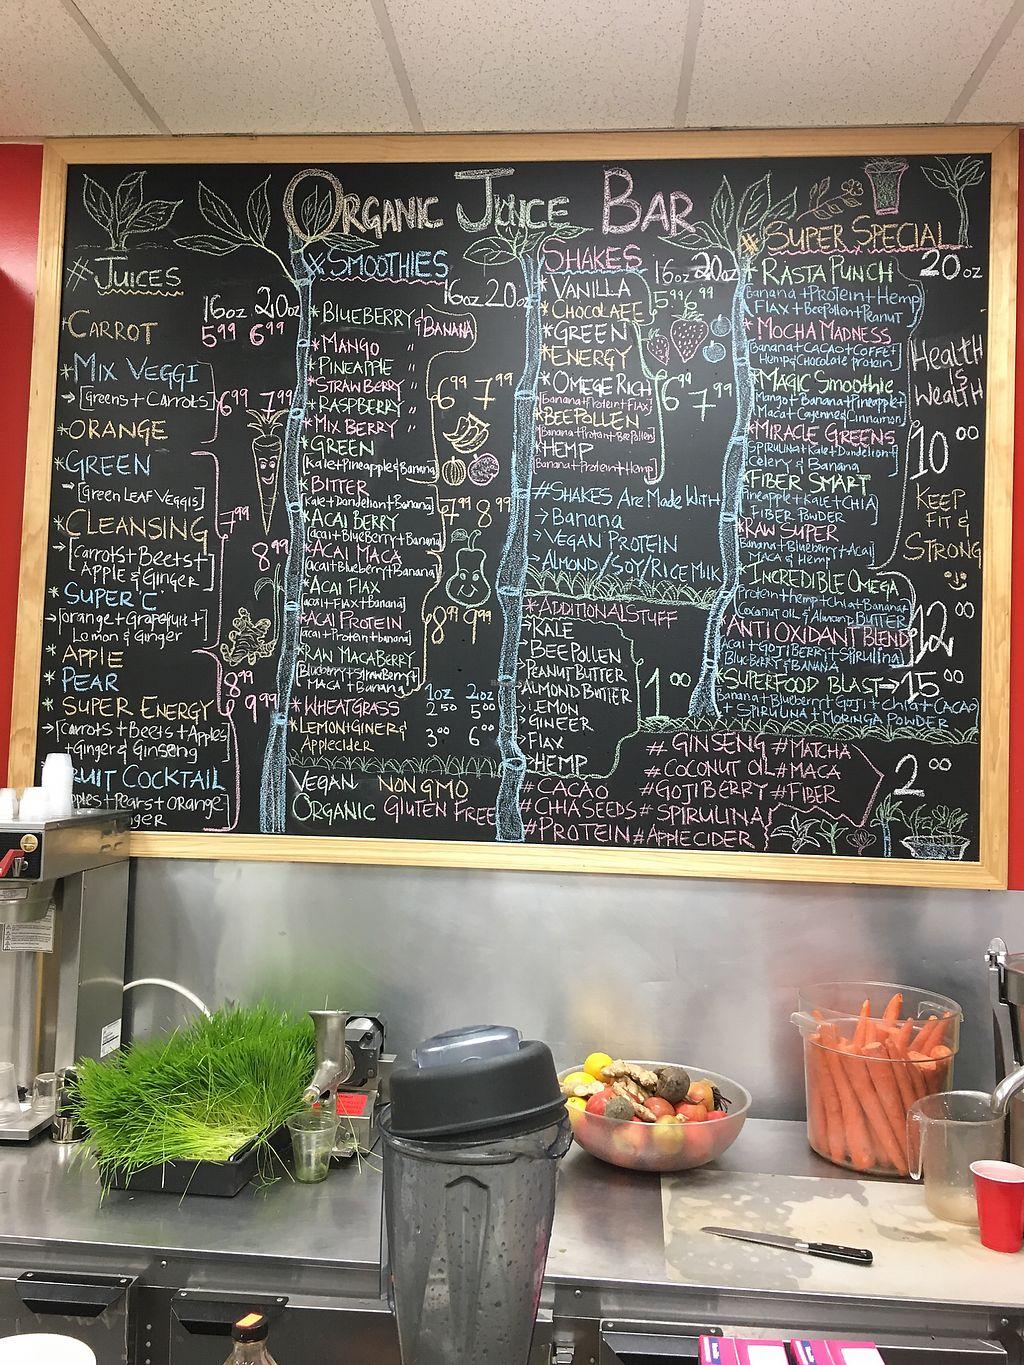 ORGANIC JUICE BAR
# JUICES
16oz 20oz
*CARROT 5 99 6 99
*MIX VEGGI
→ [Greens + Carrots] 6 99 7 99
*ORANGE
*GREEN
→ [Green LEAF VEGGIS]
7 99
*CLEANSING
→ [Carrots + Beets +
APPLE & Ginger]
8 99
*SUPER "C"
→ [orange + Grapefruit +
Lemon & Ginger]
*APPLE
*PEAR
8 99
*SUPER ENERGY
9 99
→ [Carrots + Beets + Apples
+ Ginger & Ginseng]
FRUIT COCKTAIL
+ Pears + Orange]
SMOOTHIES
16oz 20oz
*BLUEBERRY & BANANA
*MANGO "
*PINEAPPLE "
*STRAWBERRY "
*RASPBERRY "
*MIX BERRY "
6 99 7 99
*GREEN
[Kale + Pineapple & Banana]
*BITTER
[Kale + Dandelion + Banana]
7 99 8 99
*ACAI BERRY
[acai + BlueBerry + Banana]
*ACAI MACA
[acai + BlueBerry + Banana]
*ACAI FLAX
[acai + Flax + Banana]
*ACAI PROTEIN
[acai + Protein + banana]
8 99 9 99
*RAW MACABERRY
[Blueberry + StrawBerry +
MACA + Banana]
1oz 2oz
*WHEATGRASS 2 50 5 00
*LEMON + GINER &
Applecider
3 00 6 00
VEGAN NON GMO
ORGANIC GLUTEN FREE
SHAKES
16oz 20oz
*VANILLA
5 99 6 99
*CHOCOLAEE
*GREEN
*ENERGY
*OMEGE RICH
[Banana + Protein + Flax]
6 99 7 99
*BEEPOLLEN
[Banana + Protein + BeePollen]
*HEMP
[Banana + Protein + Hemp]
#SHAKES ARE MADE WITH
→ Banana
→ VEGAN PROTEIN
→ ALMOND/SOY/RICE MILK
*ADDITIONAL STUFF
→ KALE
→ BEE POLLEN
→ PEANUT BUTTER
→ ALMOND BUTTER
→ LEMON
→ GINEER
→ FLAX
→ HEMP
1 00
# GINSENG #MATCHA
#COCONUT OIL #MACA
#CACAO #GOJIBERRY #FIBER
#CHIASEEDS #SPIRULINA
#PROTEIN #APPLECIDER
2 00
# SUPER SPECIAL
20oz
*RASTA PUNCH
[Banana + Protein + Hemp
FLAX + BeePollen + Peanut]
*MOCHA MADNESS
[Banana + CACAO + COFFEE +
Hemp & Chocolate protein]
*MAGIC Smoothie
[Mango + Banana + Pineapple +
Maca + Cayenne & Cinnamon]
*MIRACLE GREENS
[SPIRULINA + Kale + Dandelion +
Celery & Banana
*FIBER SMART
Pineapple + KALE + CHIA
FIBER POWDER
*RAW SUPER
[Banana + BlueBerry + Acai
MACA & HEMP]
HeaLtH
is
WeaLtH
10 00
KEEP
FIT &
STRONG
*INCREDIBLE OMEGA
Protein + hemp + chia + Banana +
Coconut OIL & Almond BUTTER
*ANTI OXIDANT BLEND
Acai + GOJIBERRY + SPIRULINA
BLUEBERRY & BANANA
12 00
*SUPERFOOD BLAST → 15 00
[Banana + Blueberry + GOJI + Chia + CACAO
+ SPIRULINA + MORINGA POWDER